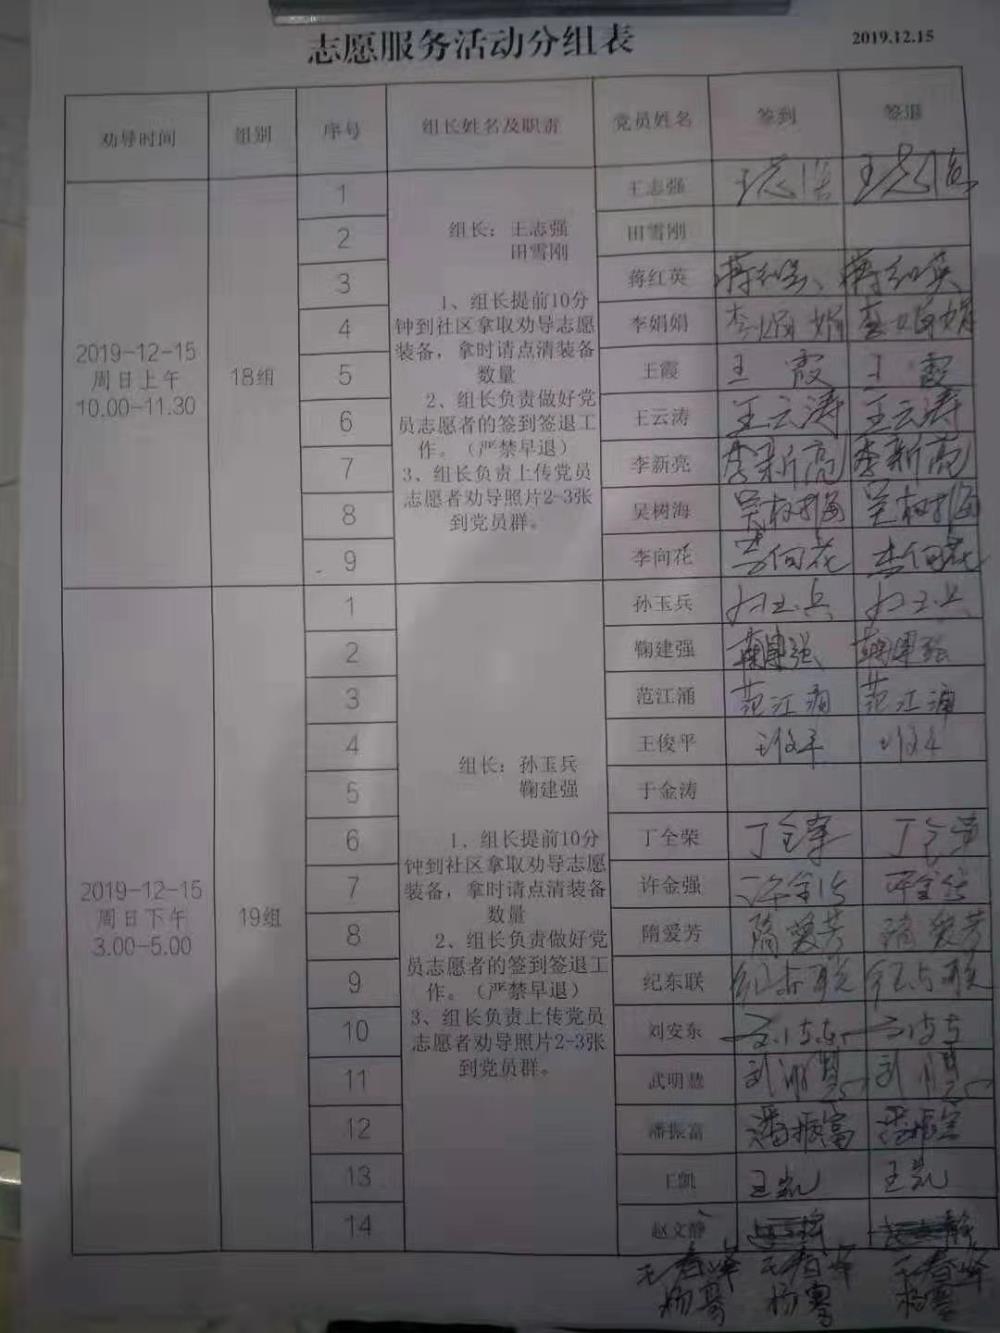 志愿服务活动分组表 2019.12.15
劝导时间 组别 序号 组长姓名及职责 党员姓名 签到 签退
2019-12-15
周日上午
10.00-11.30
18组
组长：王志强
田雪刚
1、组长提前10分
钟到社区拿取劝导志愿
装备，拿时请点清装备
数量
2、组长负责做好党
员志愿者的签到签退工
作。（严禁早退）
3、组长负责上传党员
志愿者劝导照片2-3张
到党员群。
1 王志强 王志强 王志强
2 田雪刚
3 蒋红英 蒋红英 蒋红英
4 李娟娟 李娟娟 李娟娟
5 王霞 王霞 王霞
6 王云涛 王云涛 王云涛
7 李新亮 李新亮 李新亮
8 吴树海 吴树海 吴树海
9 李向花 李向花 李向花
2019-12-15
周日下午
3.00-5.00
19组
组长：孙玉兵
鞠建强
1、组长提前10分
钟到社区拿取劝导志愿
装备，拿时请点清装备
数量
2、组长负责做好党
员志愿者的签到签退工
作。（严禁早退）
3、组长负责上传党员
志愿者劝导照片2-3张
到党员群。
1 孙玉兵 孙玉兵 孙玉兵
2 鞠建强 鞠建强 鞠建强
3 范江涌 范江涌 范江涌
4 王俊平 王俊平 王俊平
5 于金涛
6 丁全荣 丁全荣 丁全荣
7 许金强 许金强 许金强
8 隋爱芳 隋爱芳 隋爱芳
9 纪东联 纪东联 纪东联
10 刘安东
11 武明慧
12 潘振富 潘振富 潘振富
13 王凯 王凯 王凯
14 赵文静
王春峰 王春峰 王春峰
杨骞 杨骞 杨骞